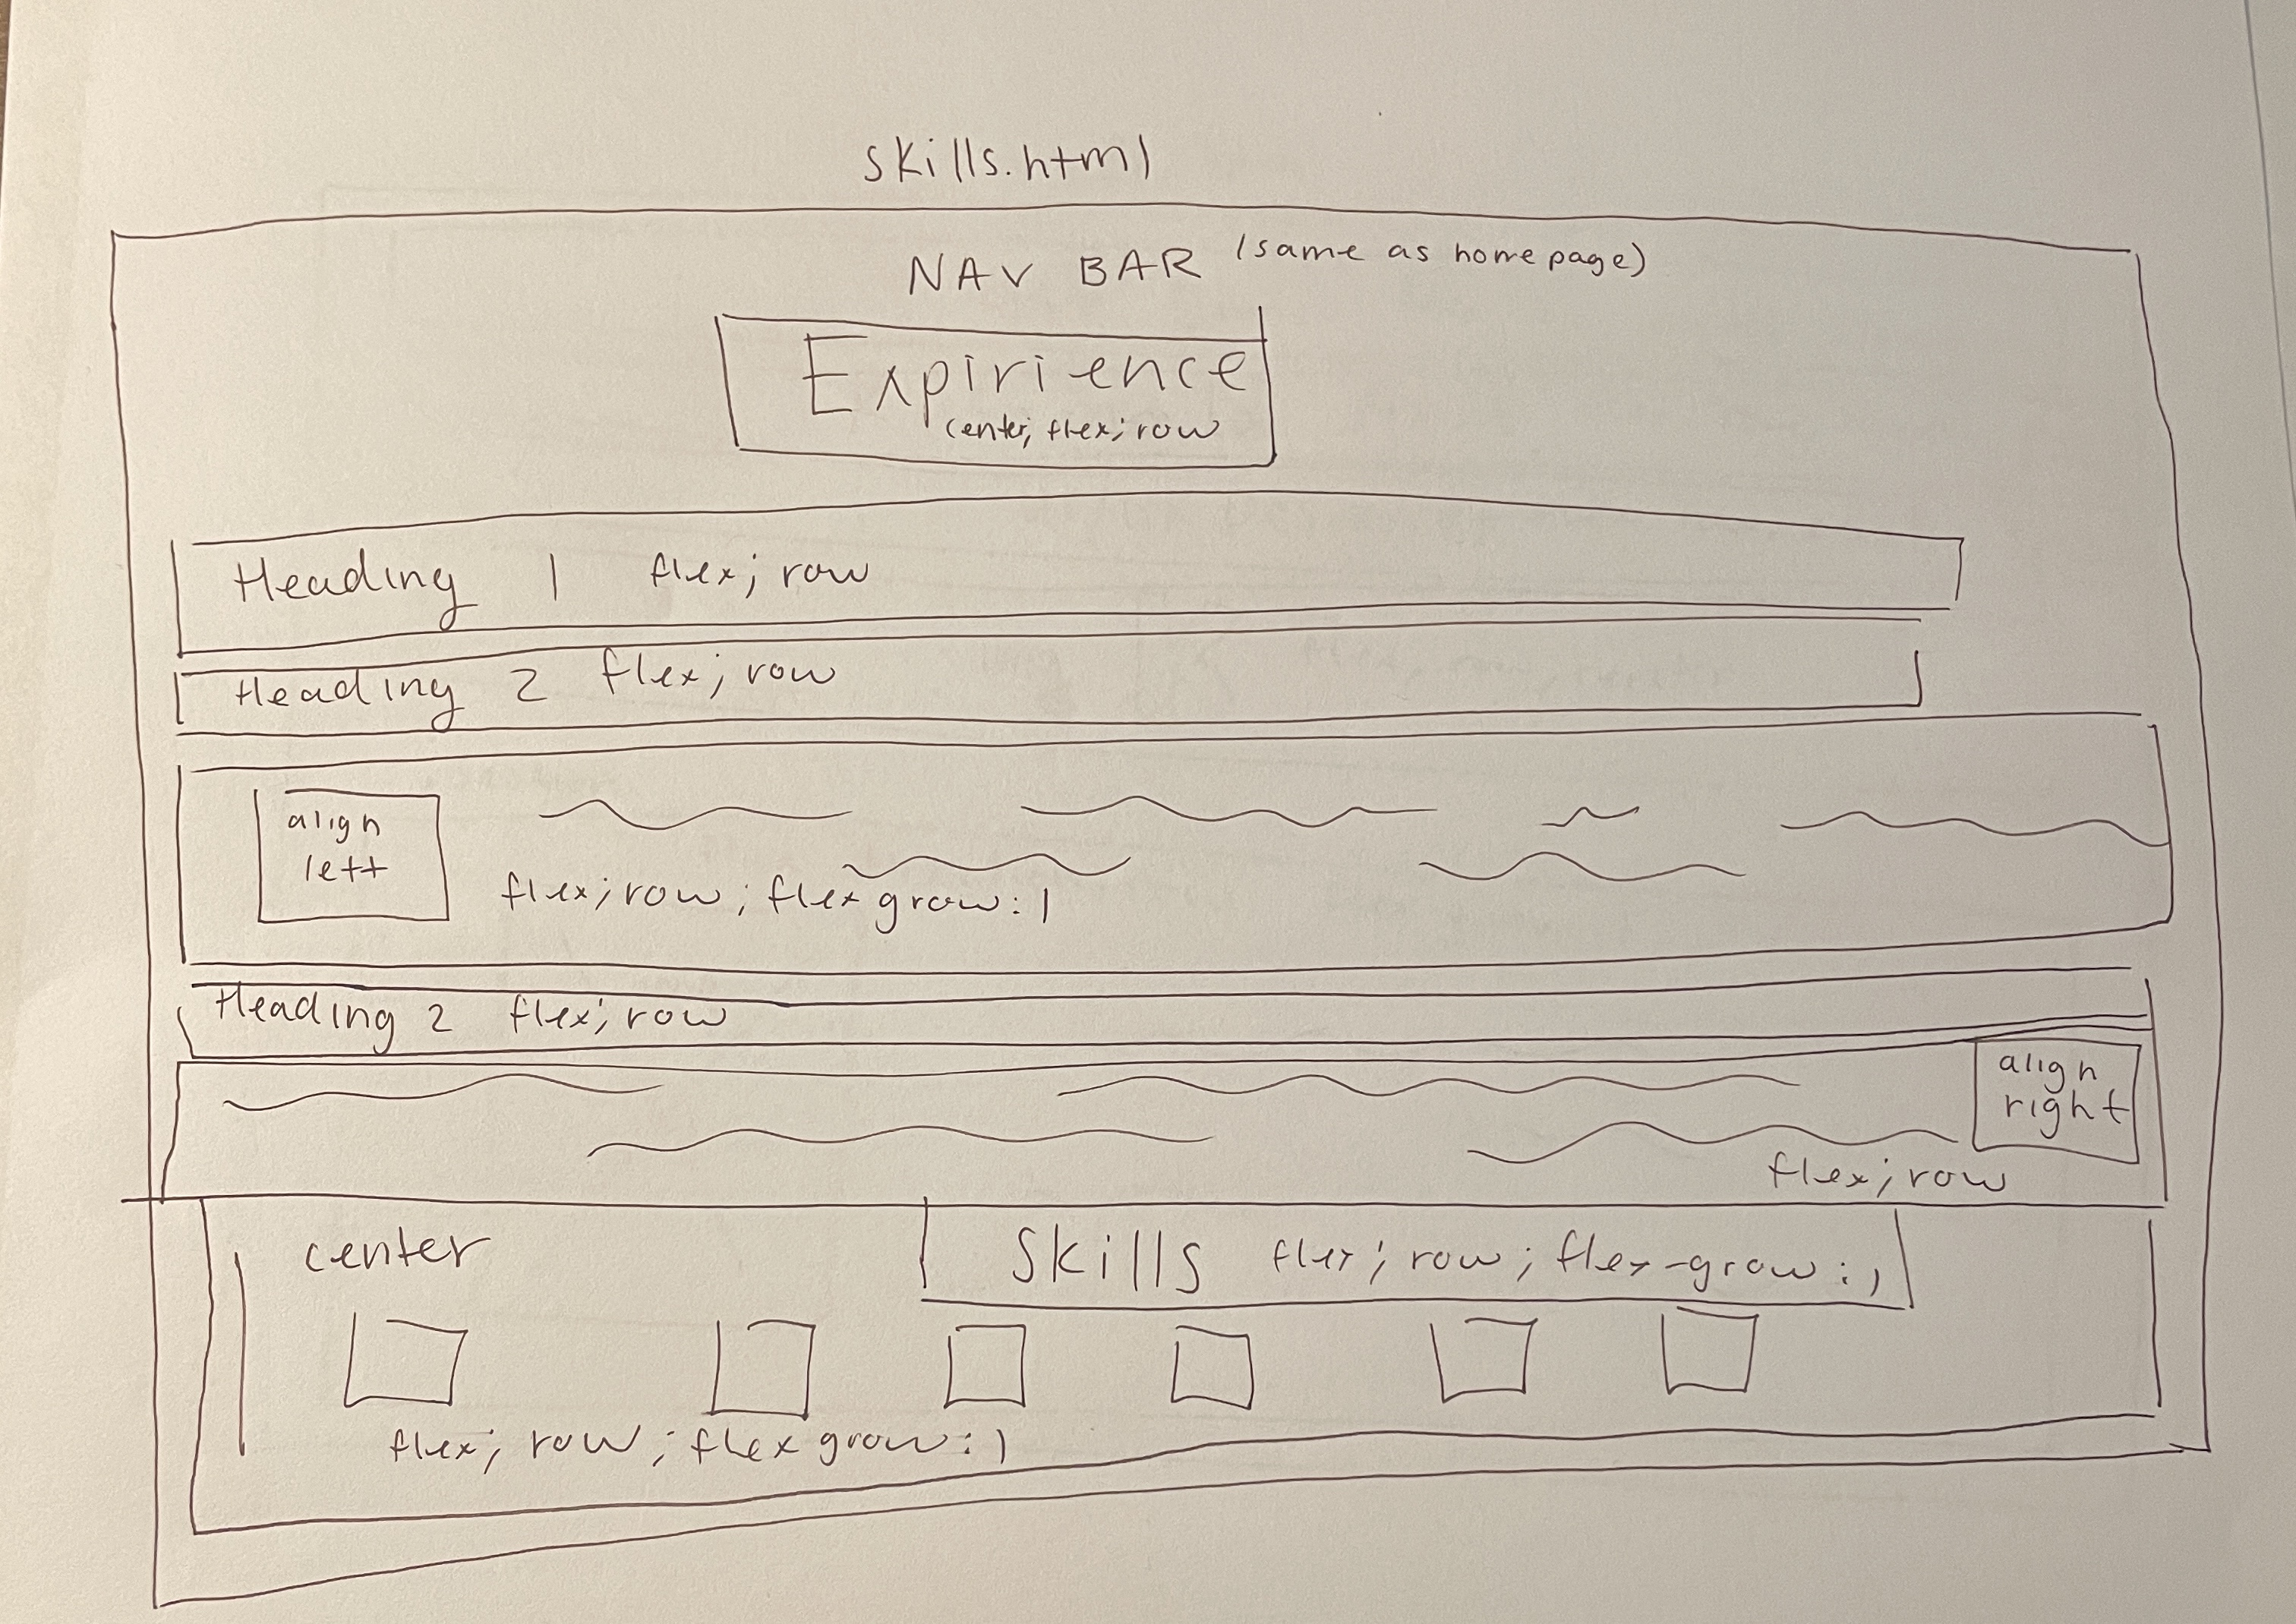 skills.html
NAV BAR (same as homepage)
Expirience
center; flex; row
Heading 1 flex; row
Heading 2 flex; row
align
left
flex; row; flex grow: 1
Heading 2 flex; row
align
right
flex; row
center
Skills flex; row; flex-grow: 1
flex; row; flex grow: 1